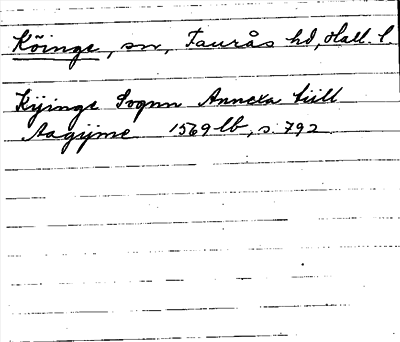 Köinge, sn, Faurås hd, Hall. l.
Kijinge Sognn Annexa tiill
Aagijme 1569 lb, s. 792